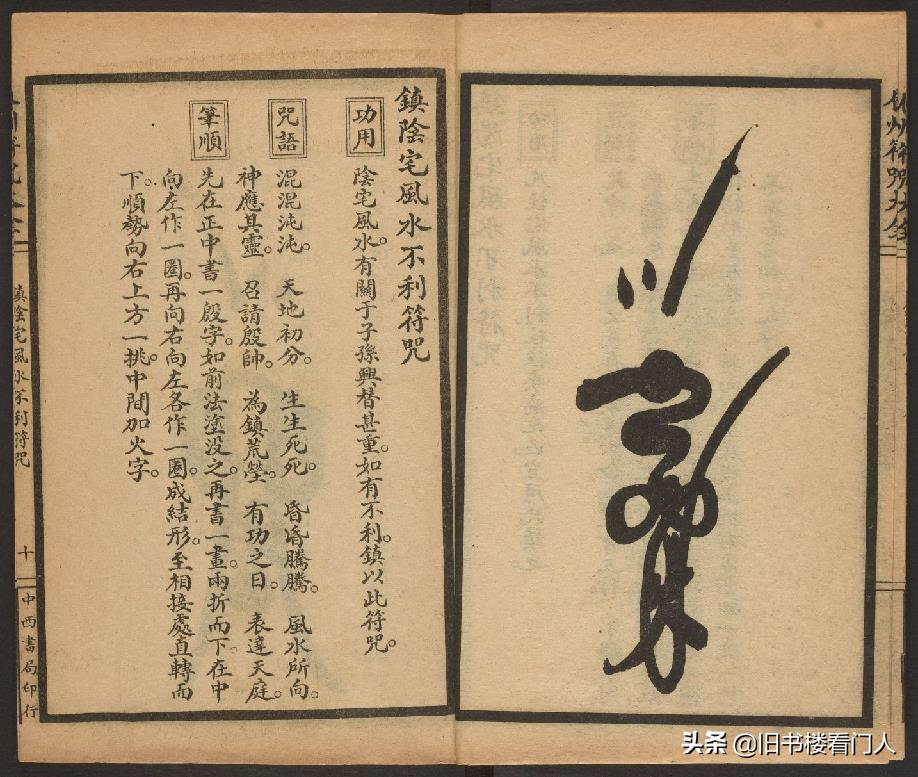 鎮陰宅風水不利符咒
功用
陰宅風水。有關于子孫興替甚重。如有不利。鎮以此符咒。
咒語
混混沌沌。天地初分。生生死死。昏昏騰騰。風水所向。
神應具靈。召請殷帥。為鎮荒塋。有功之日。表達天庭。
筆順
先在正中書一殷字。如前法塗没之。再書一畫。兩折而下。在中
向左作一圈。再向右向左各作一圈。成結形。至相接處直轉而
下。順勢向右上方一挑。中間加火字。
鎮陰宅風水不利符咒
十
中西書局印行
头条 @旧书楼看门人